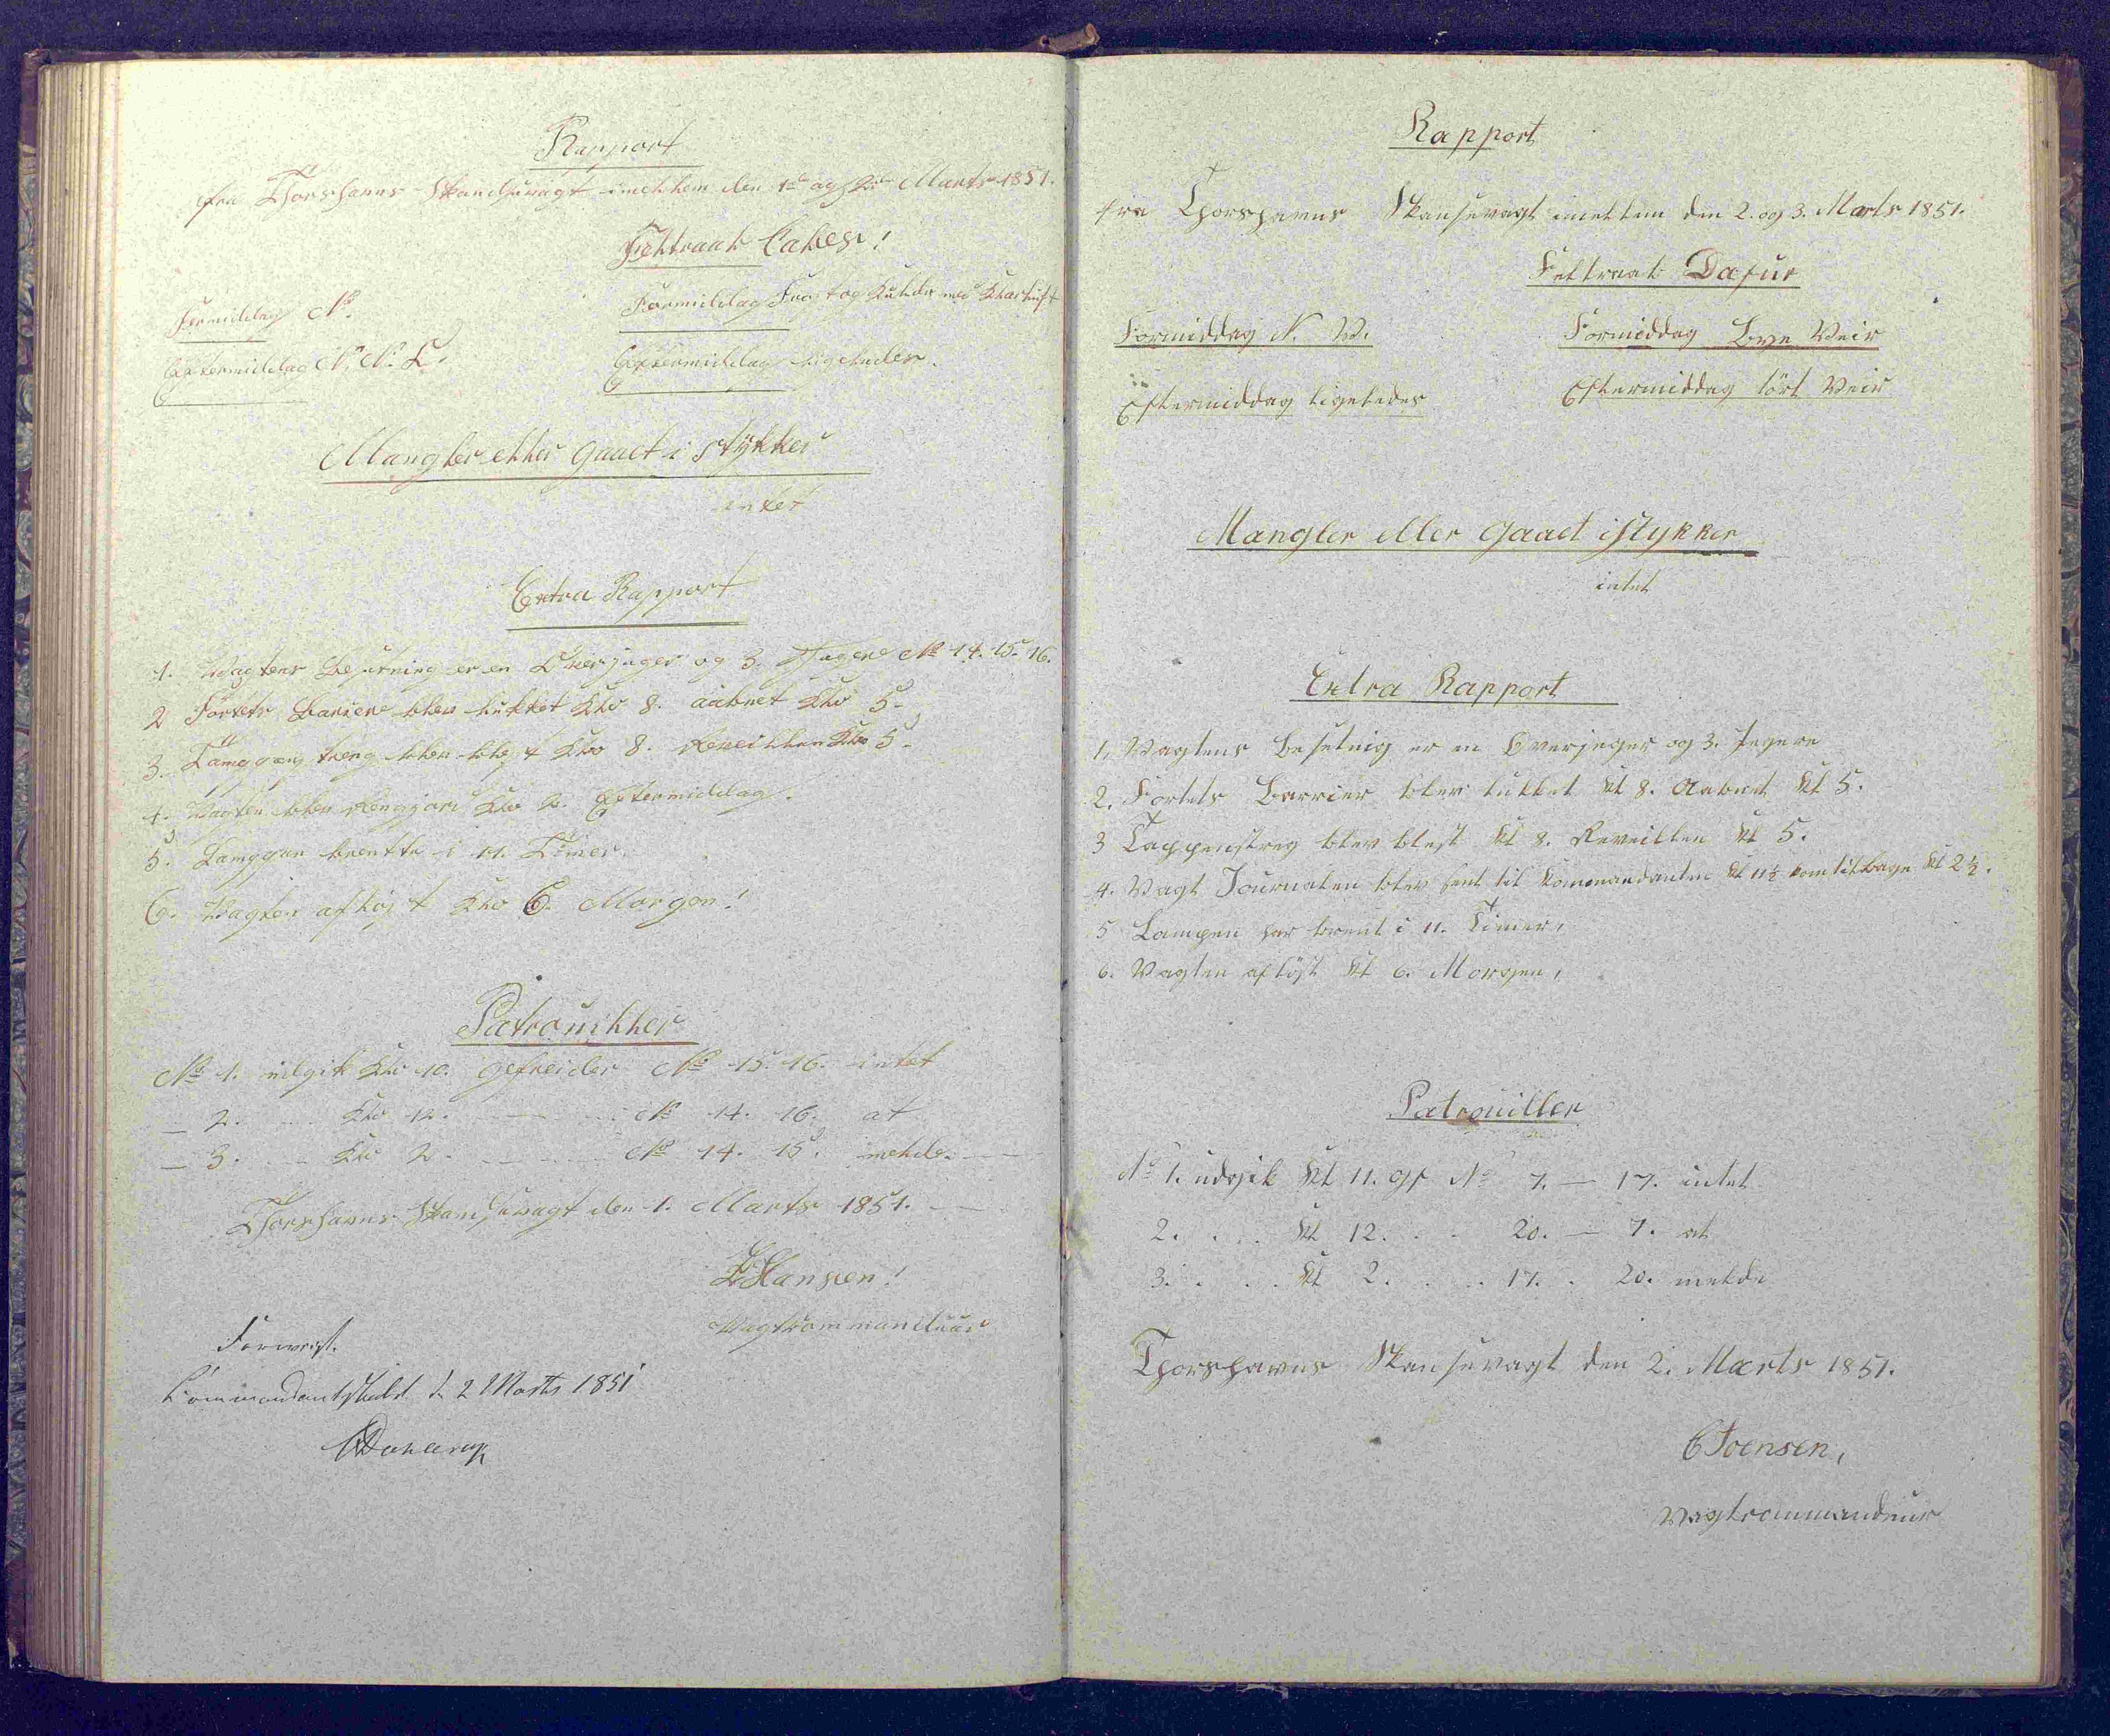 Rapport
fra Thorshavns Skandsevagt imellem den 1de og 2den Marts 1851.
Feltraab Cabes!
Formiddag N.
Formiddag Frost og Kulde med Klarluft
Eftermiddag N. N. O.
Eftermiddag ligeledes.
Mangler eller Gaaet i Stykker
intet
Extra Rapport
1. Vagtens Besetning er en Overjæger og 3. Jægere No 14. 15. 16.
2 Fortets Bariere blev lukket Klo 8. aabnet Klo 5.
3. blev blest Klo 8. Reveillen Klo 5.
4. Vagten blev Rengjort Klo 2. Eftermiddag.
5. brentte i 11. Timer.
6. Vagten afløst Klo 6. Morgen!
Patrouiller
No 1. udgik Klo 10. Gefreider No 15. 16. intet
- 2. Klo 12. No 14. 16. at
- 3. Klo 2. No 14. 15. melde.
Thorshavns Skandsevagt den 1. Marts 1851.
Hansen!
Vagtkommandeur
Forevist.
d. 2 Marts 1851
Dahlerup
Rapport
fra Thorshavns Skansevagt imellem den 2. og 3. Marts 1851.
Feltraab Dafur
Formiddag N. W.
Formiddag Veir
Eftermiddag ligeledes
Eftermiddag tört Veir
Mangler eller Gaaet istykker
intet
Extra Rapport
1, Vagtens Besetnig er en Overjeger og 3. Jegere
2. Fortets Barrier blev lukket Kl 8. Aabnet Kl 5.
3 Tappenstreg blev blest Kl 8. Reveillen Kl 5.
4. Vagt Journalen blev sent til Kommandanten Kl 11½ kom tilbage Kl 2½.
5 Lampen har brent i 11. Timer,
6. Vagten afløst Kl 6. Morgen,
Patrouiller
No 1. udgik Kl 11. Gf No 7. — 17. intet
2. . . . Kl 12. . . 20. — 7. at
3. . . . Kl 2. . . . 17. . 20. melde
Thorshavns Skansevagt den 2. Marts 1851.
Joensen,
Vagtcommandeur